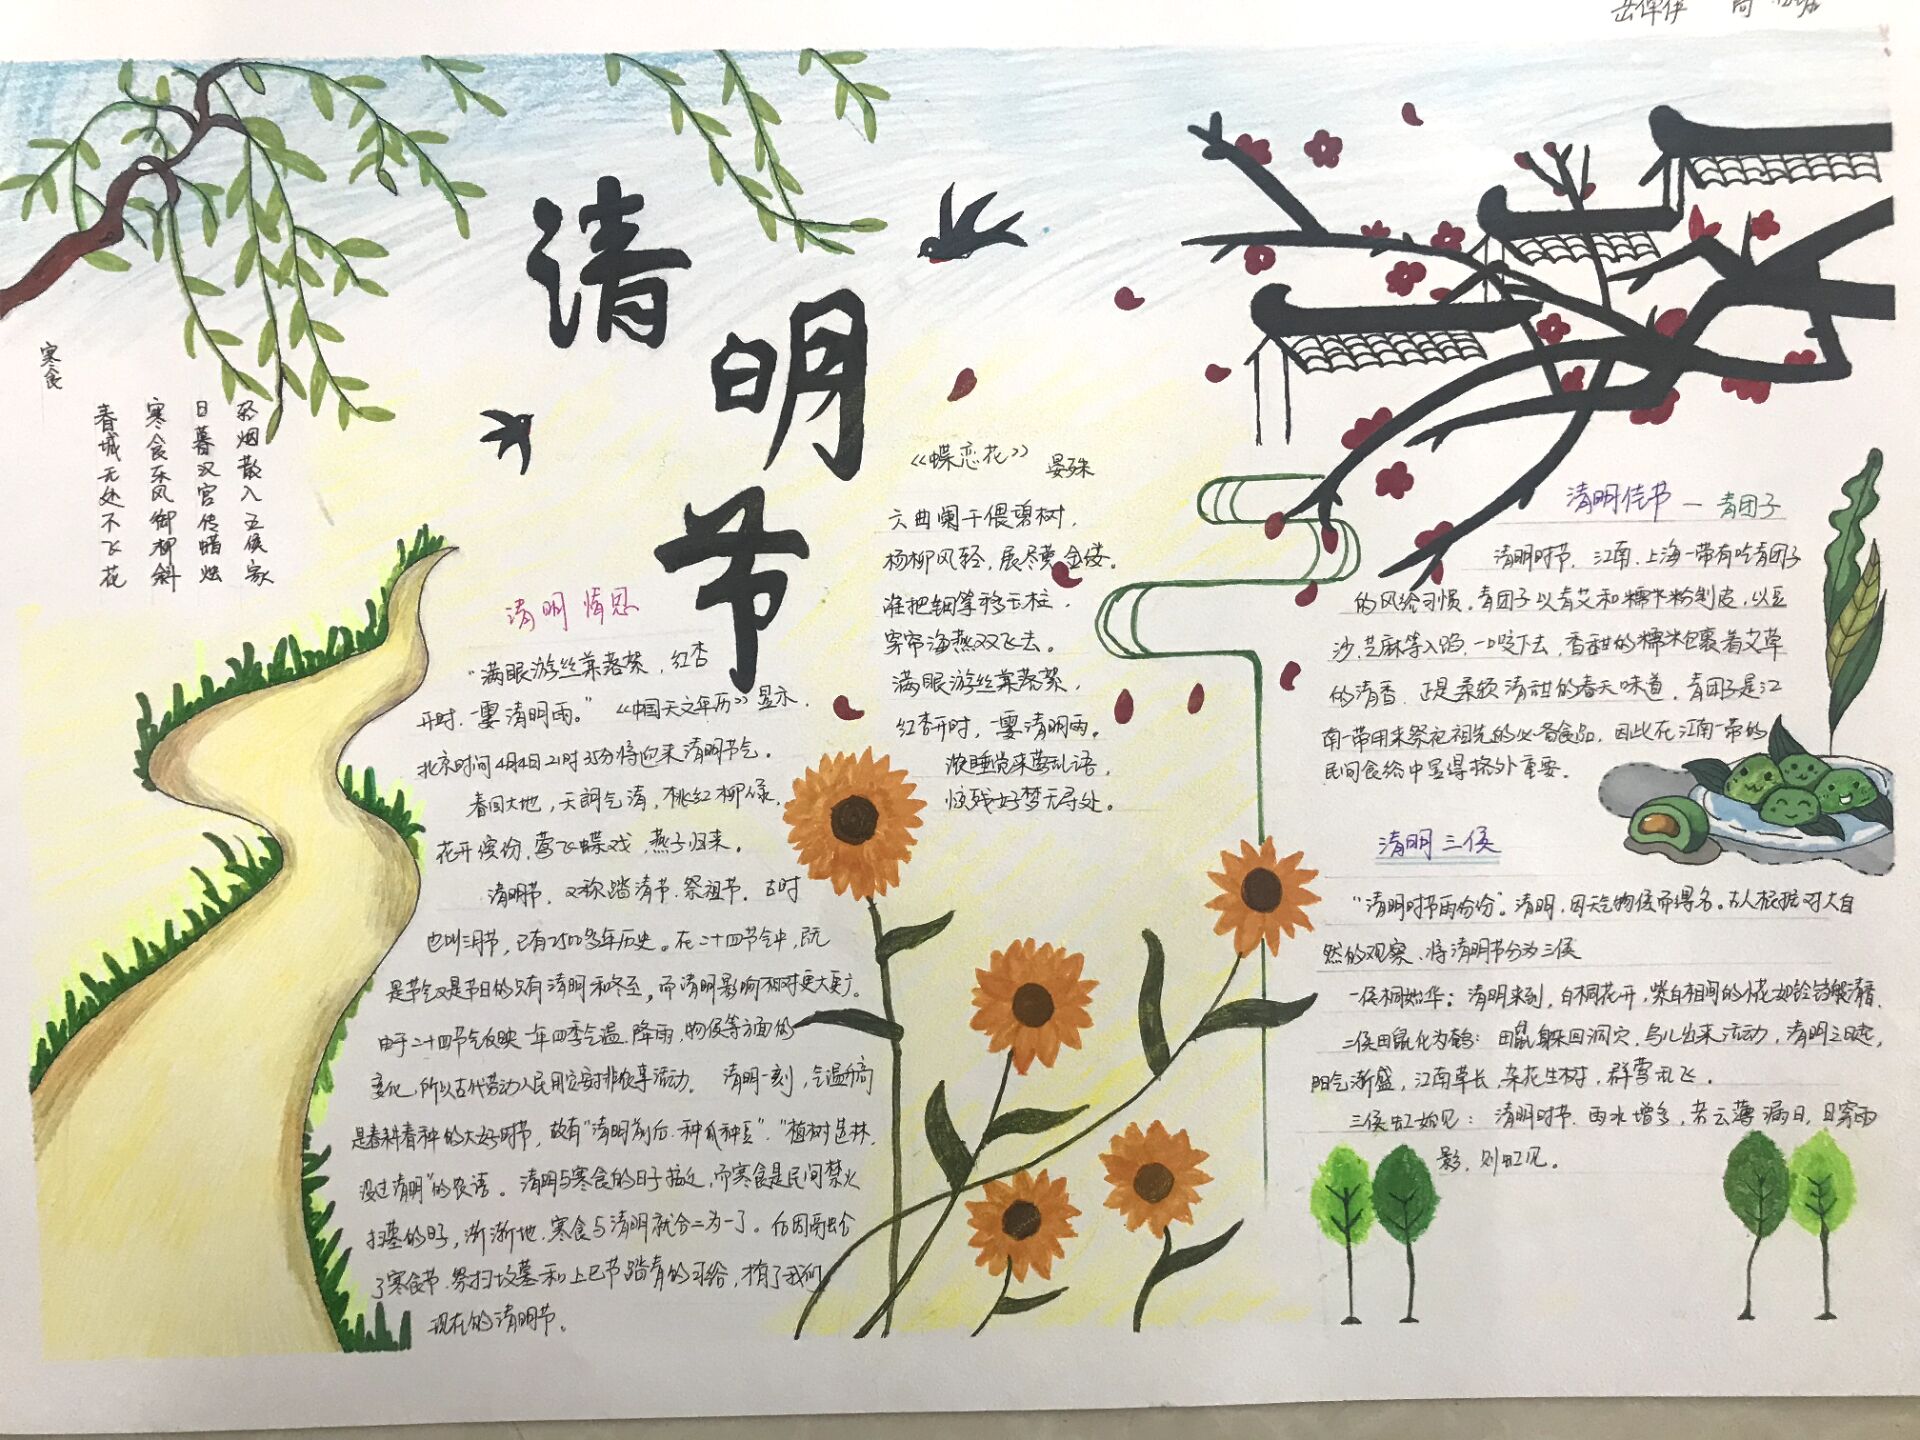 清明节
寒食
轻烟散入五侯家
日暮汉宫传蜡烛
寒食东风御柳斜
春城无处不飞花
清明情思
“满眼游丝兼落絮，红杏
开时，一霎清明雨。”《中国天文年历》显示，
北京时间4月4日21时35分将迎来清明节气。
春回大地，天朗气清，桃红柳绿，
花开缤纷，莺飞蝶戏，燕子归来。
清明节，又称踏青节、祭祖节。古时
也叫三月节，已有2500多年历史。在二十四节气中，既
是节气又是节日的只有清明和冬至，而清明影响相对更大更广。
由于二十四节气反映一年四季气温、降雨、物候等方面的
变化，所以古代劳动人民用它安排农事活动。清明一到，气温升高
是春耕春种的大好时节，故有“清明前后，种瓜种豆”、“植树造林，
没过清明”的农谚。清明与寒食的日子接近，而寒食是民间禁火
扫墓的日子，渐渐地，寒食与清明就合二为一了。
了寒食节、祭扫坟墓和上巳节踏青的习俗，才有了我们
现在的清明节。
《蝶恋花》 晏殊
六曲阑干偎碧树，
杨柳风轻，展尽黄金缕。
谁把钿筝移玉柱，
穿帘海燕双飞去。
满眼游丝兼落絮，
红杏开时，一霎清明雨。
浓睡觉来莺乱语，
惊残好梦无寻处。
清明佳节—青团子
清明时节，江南、上海一带有吃青团子
的风俗习惯。青团子以青艾和糯米粉制皮，以豆
沙、芝麻等入馅，一口咬下去，香甜的糯米包裹着艾草
的清香，正是柔软清甜的春天味道。青团子是江
南一带用来祭祀祖先的必备食品，因此在江南一带的
民间食俗中显得格外重要。
清明三候
“清明时节雨纷纷”。清明，因天气物候而得名。古人根据对大自
然的观察，将清明节分为三候
一候桐始华：清明来到，白桐花开，紫白相间的小花如铃铛般清香，
二候田鼠化为鹌：田鼠躲回洞穴，鸟儿出来活动，清明之日起，
阳气渐盛，江南草长，杂花生树，群莺乱飞。
三候虹始见：清明时节，雨水增多，若云薄漏日，日穿雨
影，则虹见。